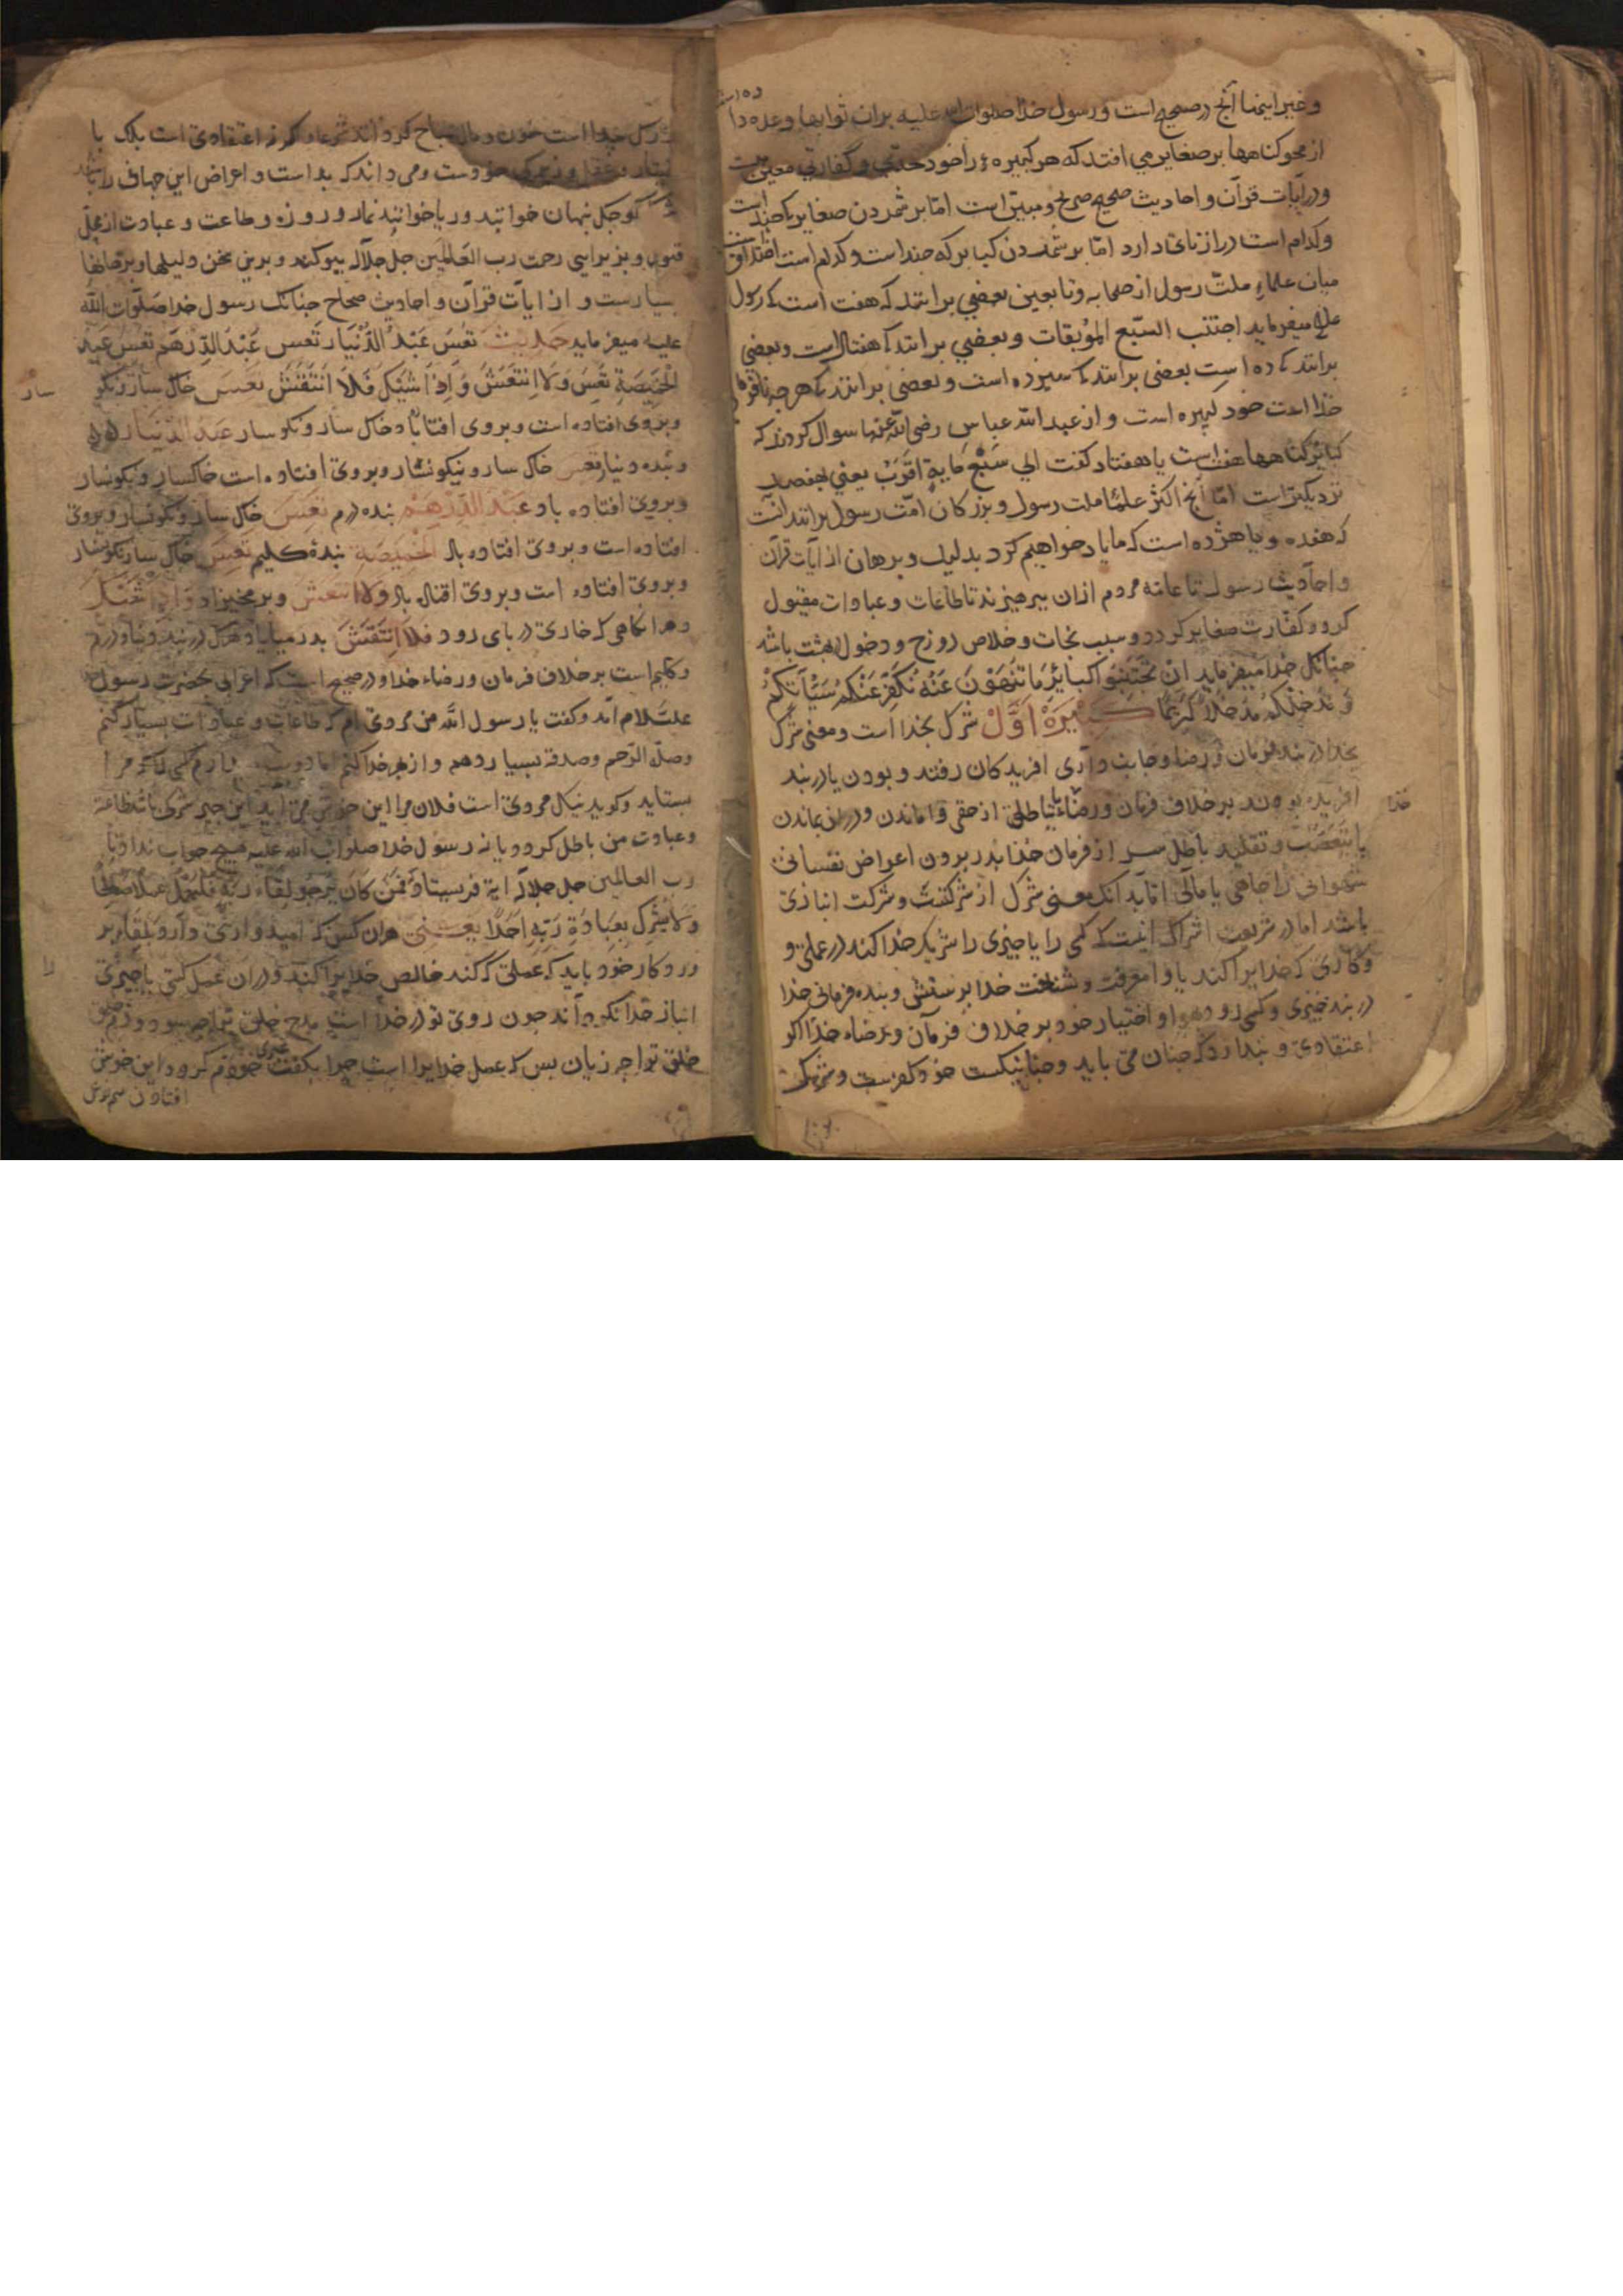 وغیر اینها آنج در صحیح است و رسول خدا صلوات الله علیه بران ثوابها وعده دا
ده است
از محو کناهها بر صغایر می افتد که هر کبیره را خود حدی و کفارتی معین است
و در آیات قرآن و احادیث صحیح صریح و مبین است اما بر شمردن صغایر که چند است
و کدام است درازنائی دارد اما بر شمردن کبایر که چند است و کدام است اختلاف است
میان علماء ملت رسول از صحابه و تابعین بعضی برانند که هفت است که رسول
علیه میفرماید اجتنب السبع الموبقات و بعضی برانند که هفتاد است و بعضی
برانند که ده است بعضی برانند که سیزده است و بعضی برانند که هرچه نافرمانی
خدا است خود کبیره است و از عبد الله عباس رضی الله عنهما سوال کردند که
کبایر کناهها هفت است یا هفتاد کفت الی سَبْعِ مایةٍ اَقْرَبُ یعنی بهفصد
نزدیکتر است اما آنج اکثر علماء ملت رسول و بزرکان امت رسول برانند آنست
که هفده و یا هژده است که ما یاد خواهیم کرد بدلیل و برهان از آیات قرآن
و احادیث رسول تا عامه مردم ازان بپرهیزند تا طاعات و عبادات مقبول
کردد و کفارت صغایر کردد و سبب نجات و خلاص دوزخ و دخول بهشت باشد
چنانک خدا میفرماید اِنْ تَجْتَنِبُوا کَبائِرَ ما تُنْهَوْنَ عَنْهُ نُکَفِّرْ عَنْکُمْ سَیِّآتِکُمْ
وَ نُدْخِلْکُمْ مُدْخَلاً کَرِیماً کَبِیرَهْ اَوَّلْ شرک بخدا است و معنی شرک
بخدا در بند فرمان و رضا و جانب داری افریدکان رفتن و بودن یا در بند
افریده بودن بر خلاف فرمان و رضاء خدا یا باطلی از حقی واماندن و دران بماندن
یا بتعصب و تقلید باطل سر از فرمان خدا بدر بردن اعراض نفسانی
شهوانی را جاهی یا مالی اما بدانک معنی شرک از شرکتست و شرکت انبازی
باشد اما در شریعت اشراک آنست که کسی را یا چیزی را شریک خدا کند در عملی و
و کاری که خدایرا کند یا و امعرفت و شناخت خدا پرستش و بنده فرمانی خدا
در بند چیزی و کسی رود و هوا و اختیار خود بر خلاف فرمان و رضاء خدا اکر
اعتقادی و پندارد که چنان می باید و چنان نیکست خود کفرست و شرک
شرک بخدا است خون و مال مباح کردانند شرعا و اکر نه اعتقادی است بلک با
و زیرک خودست و می داند که بد است و اعراض این جهانی را باشد
شرک کوچک پنهان خوانند و ریا خوانند نماز و روزه و طاعت و عبادت از محل
قبول و پذیرایی رحت رب العالمین جل جلاله بیوکند و برین سخن دلیلها و برهانها
بسیارست و از ایات قرآن و احادیث صحاح چنانک رسول خدا صلوات الله
علیه میفرماید حدیث تَعِسَ عَبْدُ الدِّیْنارِ تَعِسَ عَبْدُ الدِّرْهَمِ تَعِسَ عَبْدُ
الْخَمِیصَةِ تَعِسَ وَ لاَ انْتَعَشَ وَ اِذا شِیْکَ فَلاَ انْتَقَشَ تَعِسَ خاک سار و نکو
سار
و بروی افتاده است و بروی افتاده باد خاک سار و نکوسار عبد الدینار
و بنده دینار تعس خاک سار و نیکونسار و بروی افتاده است خاکسار و نکونسار
و بروی افتاده باد عَبْدَ الدِّرْهَمْ بنده درم تَعِسَ خاک سار و نکونسار و بروی
افتاده است و بروی افتاده باد الخَمِیصَةِ بندۀ کلیم تَعِسَ خاک سار نکونسار
و بروی افتاده است و بروی افتاده باد وَلاَ انتَعَشَ و بر مخیزاد وَ اِذا شِیْکَ
و هر انکاهی که خاری در پای رود فَلاَ انْتَقَشَ بدر میایاد هرک در بند دینار و درم
و کلیم است بر خلاف فرمان و رضاء خدا و در صحیح است که اعرابی بحضرت رسول
علیه السلام آمد و کفت یا رسول الله من مردی ام که طاعات و عبادات بسیار کنم
وصله الرحم و صدقه بسیار دهم و از بهر خدا کنم اما دوست دارم کسی که مرا
بستاید و کوید نیک مردی است فلان مرا این خوش می اید این چیز شرک باشد طاعة
و عبادت من باطل کردد یا نه رسول خدا صلوات الله علیه هیچ جواب نداد تا
رب العالمین جل جلاله ایة فرستاد فَمَنْ کانَ یَرْجُو لِقاءَ رَبِّهِ فَلْیَعْمَلْ عَمَلاً صالِحاً
وَلایُشْرِکْ بِعِبادَةِ رَبِّهِ اَحَداً یعنی هران کس که امیدواری دارد بلقاء پر
وردکار خود باید که عملی که کند خالص خدایرا کند و دران عمل کسی یا چیزی
انباز خدا نکرداند چون روی تو در خدا است مدح خلق ترا چه سود و ذم
خلق ترا چه زیان پس که عمل خدایرا است چرا بکفت
افتادن
خدا